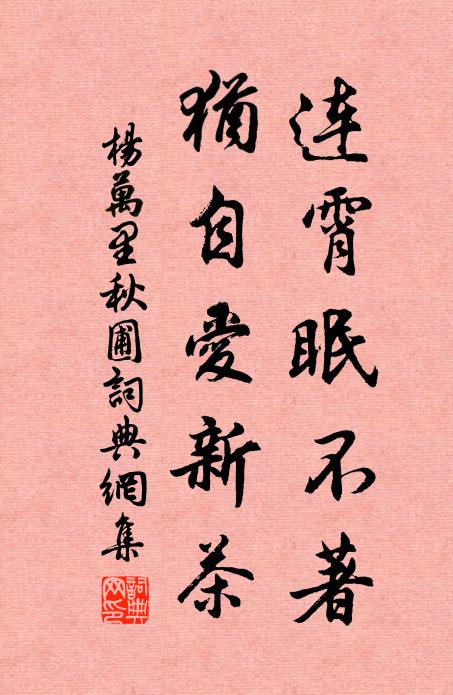 連霄眠不著
猶自愛新茶
楊萬里秋圃詞典網集
詞典網印